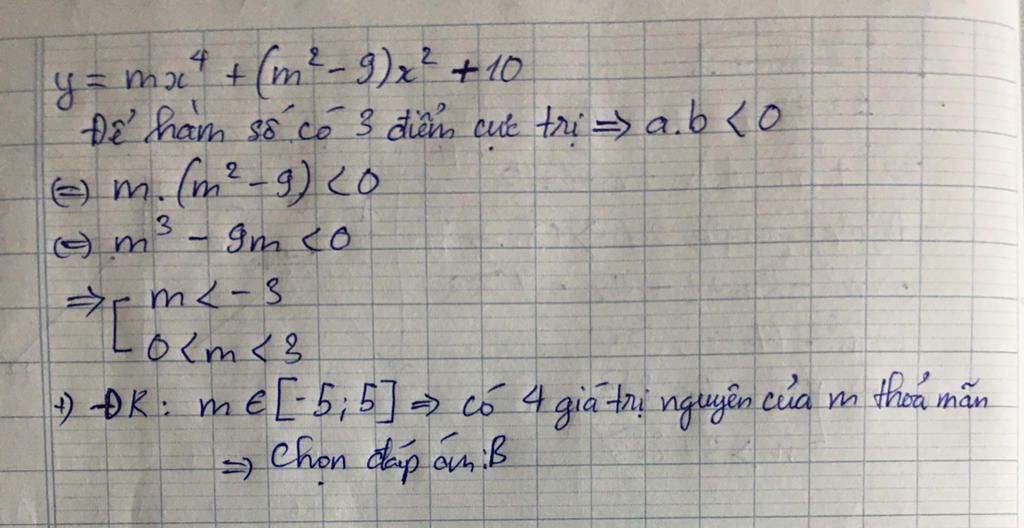 y = mx⁴ + (m² - 9)x² + 10
Để hàm số có 3 điểm cực trị ⇒ a.b < 0
(=) m.(m² - 9) < 0
(=) m³ - 9m < 0
⇒ [ m < -3
0 < m < 3
+) ĐK: m ∈ [-5; 5] ⇒ có 4 giá trị nguyên của m thoả mãn
⇒ Chọn đáp án: B